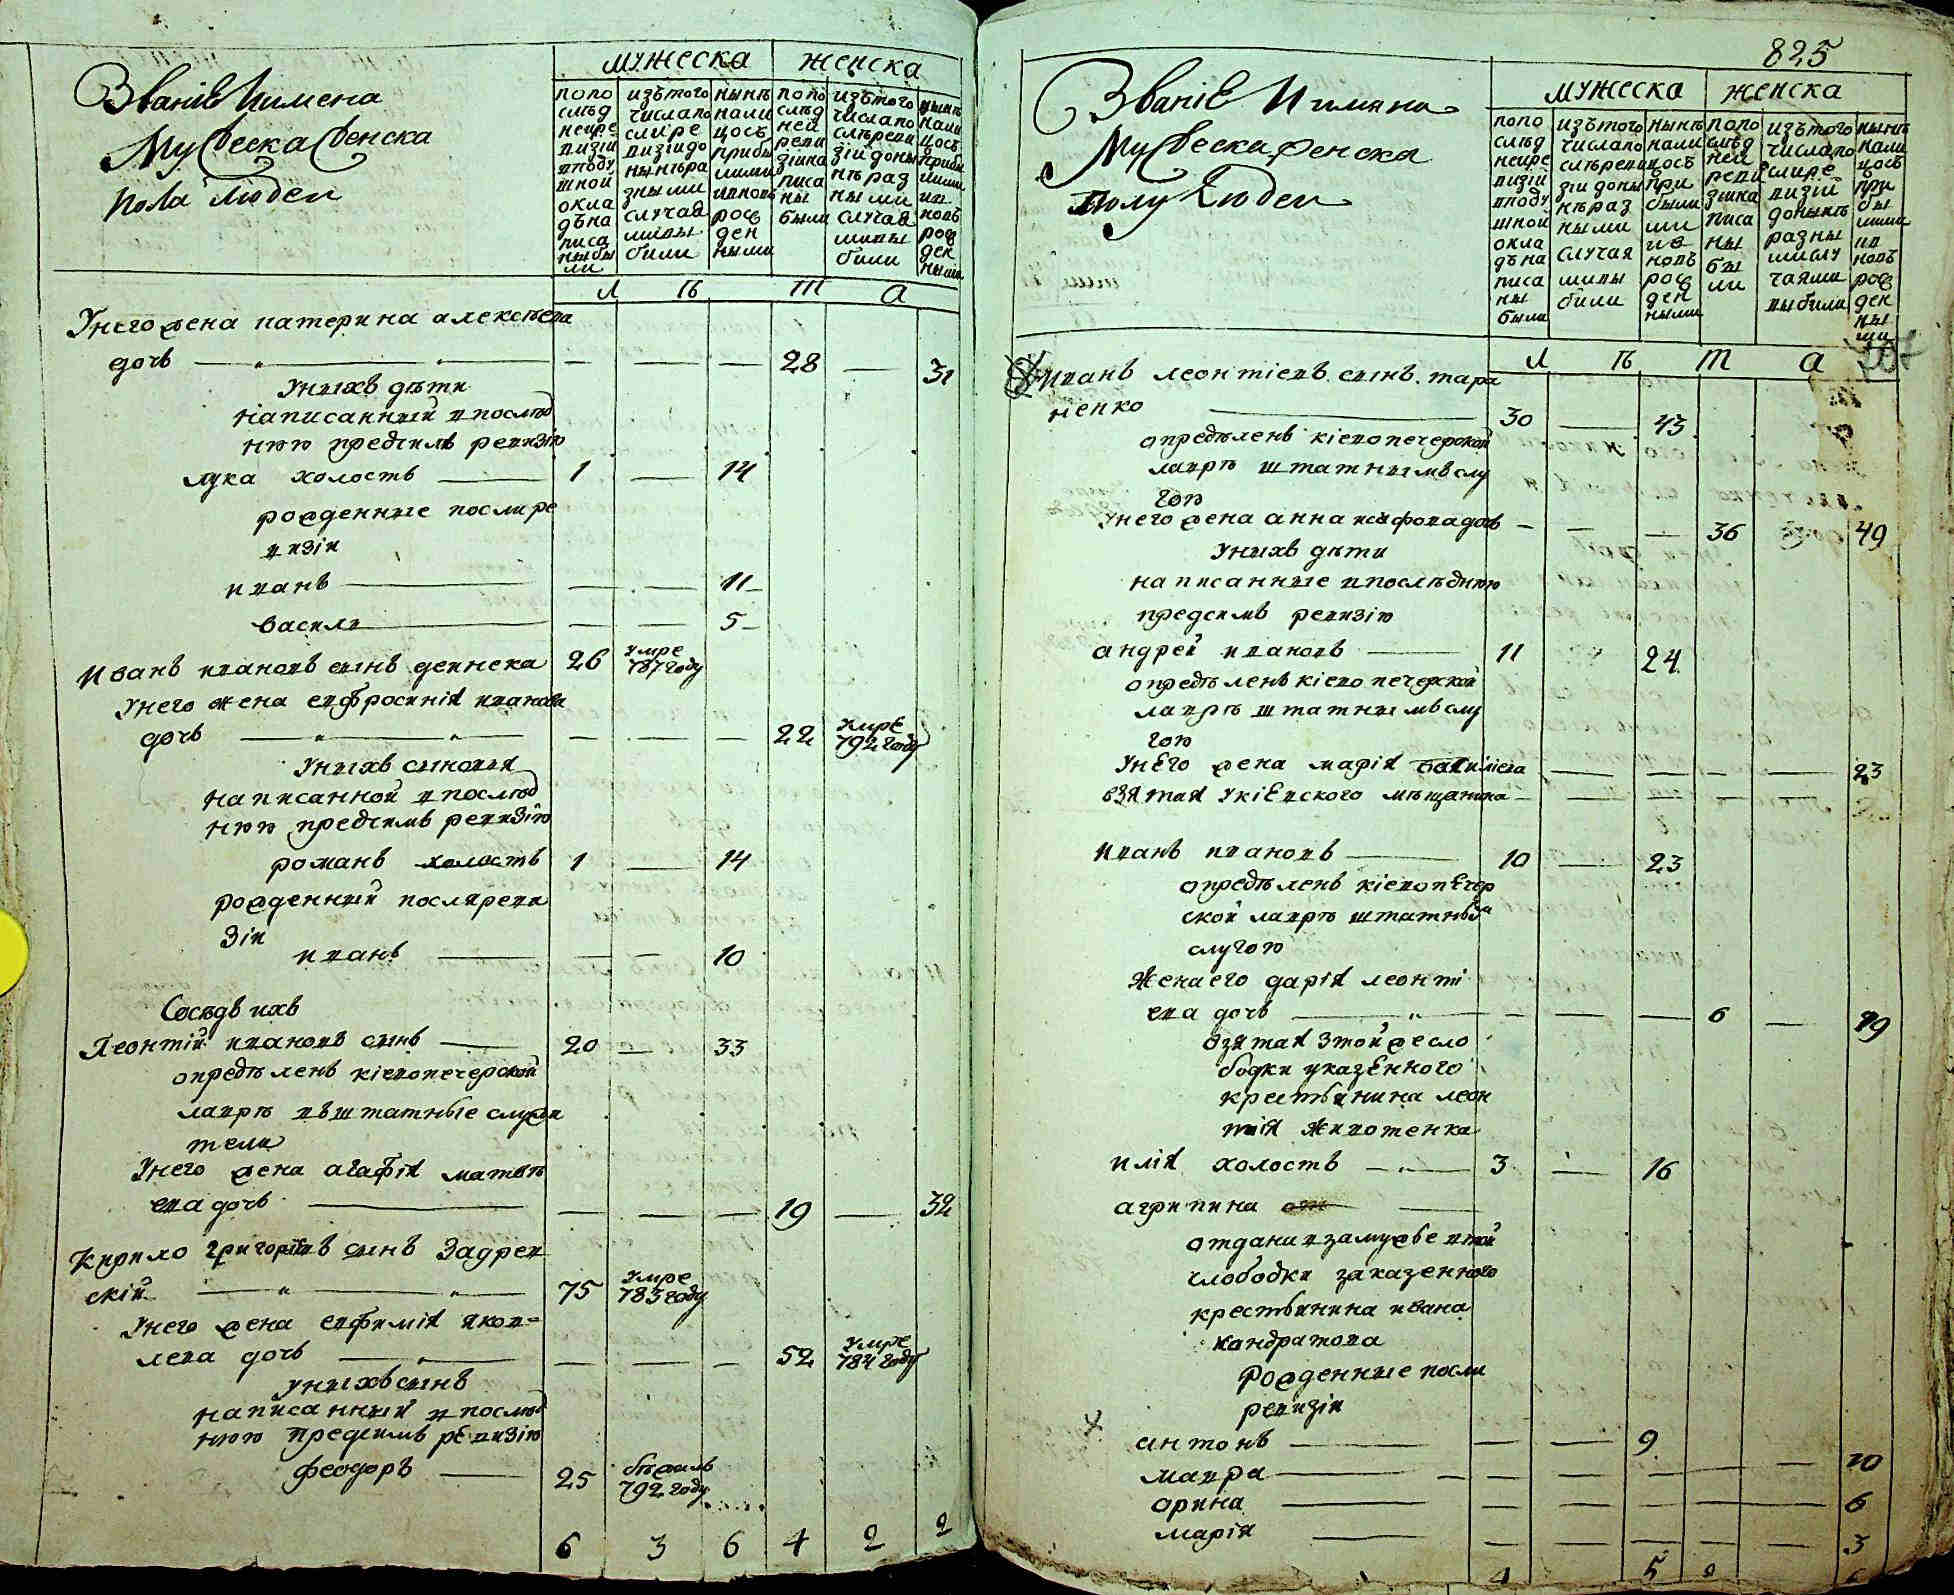 Званіе Иимена
Мужеска Женска
пола людеи
мужеска
женска
попо
слѣд
неире
визіи
вподу
шной
окла
дѣна
писа
ныбы
ли
изътого
числапо
слире
визіидо
нынѣра
зными
случая
мивы
били
нынѣ
нали
цосъ
прибы
лими
вновь
рож
ден
ными
попо
слѣд
ней
реви
зіина
писа
ны
были
изътого
числапо
слѣреви
зіидоны
нѣраз
ными
случая
мивы
били
нынѣ
нали
цосъ
прибы
лими
ив
новь
рож
ден
ными
л ѣ т а
Унего жена катерина алексѣева
дочь — 28 — 31
Унихъ дѣти
написанный впослѣд
нюю предсимъ ревизію
лука холостъ — 1 — 14
рожденные послире
визіи
иванъ — 11
василь — 5
Иванъ ивановъ сынъ деинека 26 умре
787 году
Унего жена евфросинія иванова
дочь — 22 умре
792 году
Унихъ сыновья
написанной впослѣд
нюю предсимъ ревизію
романъ холостъ 1 — 14
рожденный послиреви
зіи
иванъ — 10
Сосѣдъ ихъ
Леонтій ивановъ сынъ — 20 — 33
опредѣленъ кіевопечерской
лаврѣ вштатные служи
тели
Унего жена агафія матвѣ
ева дочь — 19 — 32
Кирило григоріевъ сынъ Задрев
скій — 75 умре
783 году
Унего жена евфимія яков-
лева дочь — 52 умре
784 году
унихъ сынъ
написанный впослѣд
нюю предсимъ ревизію
феодоръ — 25 бѣжалъ
792 году
6 3 6 4 2 2
825
Званіе Иимяна
Мужеска женска
полу Людеи
мужеска
женска
попо
слѣд
неире
визіи
вподу
шной
окла
дѣна
писа
ны
были
изътого
числапо
слѣреви
зіидоны
нѣраз
ными
случая
мивы
били
нынѣ
нали
цосъ
при
были
ми
ив
новь
рож
ден
ными
попо
слѣд
ней
реви
зіина
писа
ны
бы
ли
изътого
числапо
слире
визій
донынѣ
разны
мислу
чаями
выбили
нынѣ
нали
цосъ
при
бы
лими
ив
новь
рож
ден
ны
ми
л ѣ т а
Иванъ леонтіевъ сынъ тара
ненко — 30 — 43
опредѣленъ кіевопечерской
лаврѣ штатнымъ слу
гою
Унего жена анна дочь — 36 49
Унихъ дѣти
написанные впослѣднюю
предсимъ ревизію
андрей ивановъ — 11 24
опредѣленъ кіевопечерской
лаврѣ штатнымъ слу
гою
Унего жена марія василіева — 23
взятая укіевского мѣщанина
Иванъ ивановъ — 10 — 23
опредѣленъ кіевопечер
ской лаврѣ штатнымъ
слугою
Жена его дарія леонті
ева дочь — 6 — 19
взятая зтойже сло
бодки указенного
крестьянина леон
тія
илія холостъ — 3 — 16
агрипина
отдани взамужье втой
слободки заказенного
крестьянина ивана
кандратова
Рожденные посли
ревизіи
антонъ — 9
мавра — 10
орина — 6
марія — 3
4 5 2